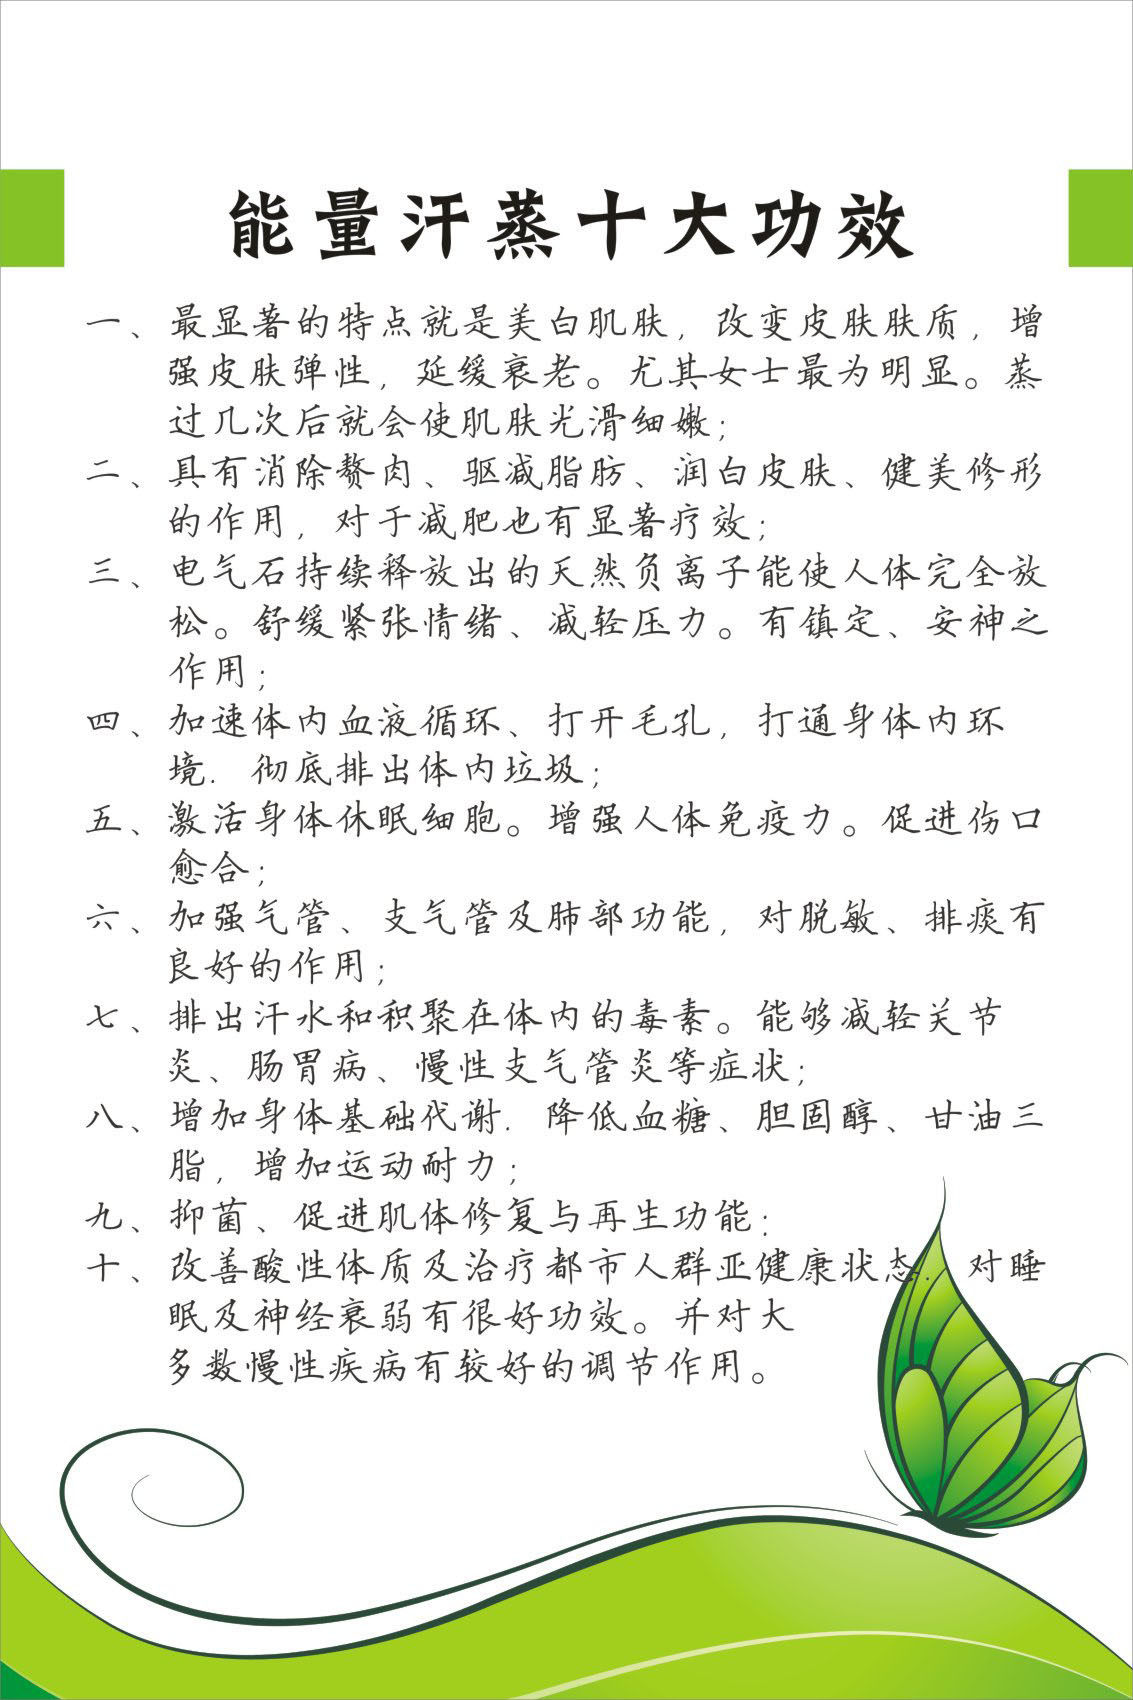 能量汗蒸十大功效
一、最显著的特点就是美白肌肤，改变皮肤肤质，增
强皮肤弹性，延缓衰老。尤其女士最为明显。蒸
过几次后就会使肌肤光滑细嫩；
二、具有消除赘肉、驱减脂肪、润白皮肤、健美修形
的作用，对于减肥也有显著疗效；
三、电气石持续释放出的天然负离子能使人体完全放
松。舒缓紧张情绪、减轻压力。有镇定、安神之
作用；
四、加速体内血液循环、打开毛孔，打通身体内环
境．彻底排出体内垃圾；
五、激活身体休眠细胞。增强人体免疫力。促进伤口
愈合；
六、加强气管、支气管及肺部功能，对脱敏、排痰有
良好的作用；
七、排出汗水和积聚在体内的毒素。能够减轻关节
炎、肠胃病、慢性支气管炎等症状；
八、增加身体基础代谢．降低血糖、胆固醇、甘油三
脂，增加运动耐力；
九、抑菌、促进肌体修复与再生功能；
十、改善酸性体质及治疗都市人群亚健康状态．对睡
眠及神经衰弱有很好功效。并对大
多数慢性疾病有较好的调节作用。